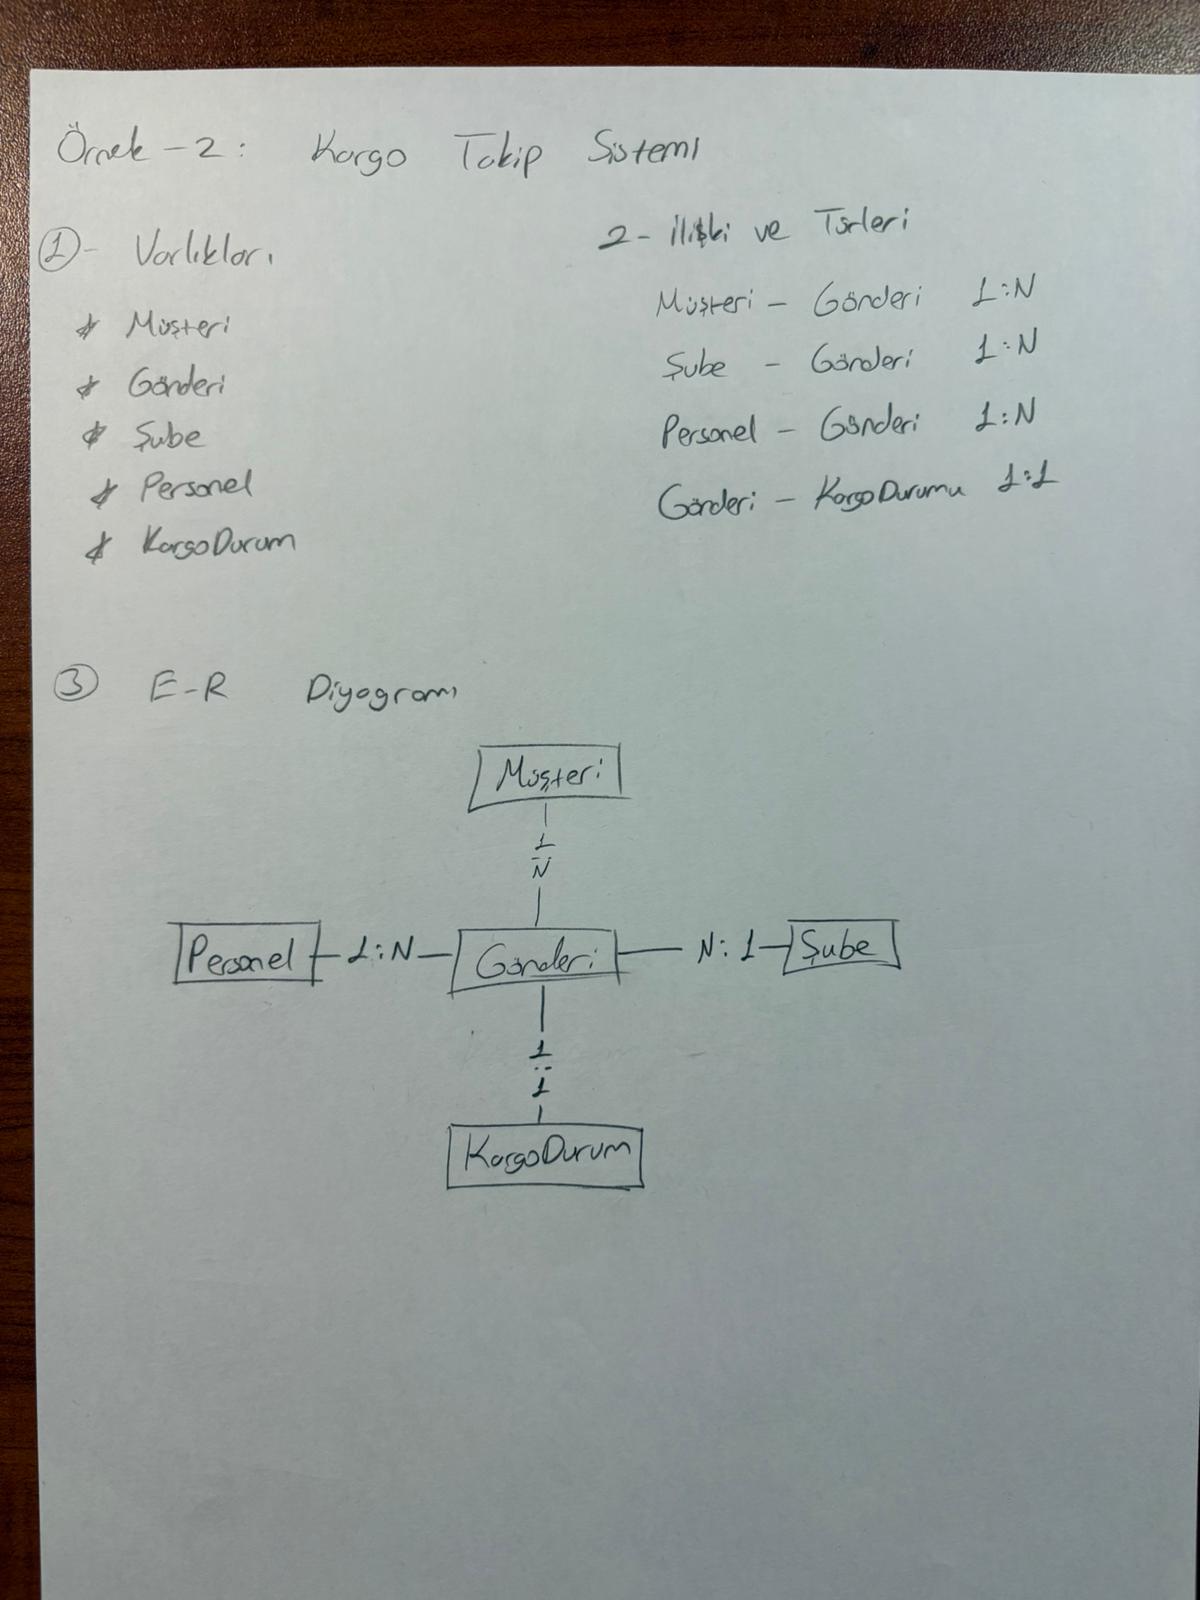 Örnek - 2 : Kargo Takip Sistemi
① - Varlıkları
* Müşteri
* Gönderi
* Şube
* Personel
* KargoDurum
2 - İlişki ve Türleri
Müşteri - Gönderi 1:N
Şube - Gönderi 1:N
Personel - Gönderi 1:N
Gönderi - KargoDurumu 1:1
③ E-R Diyagramı
Müşteri
1
:
N
Personel 1:N Gönderi N:1 Şube
1
:
1
KargoDurum